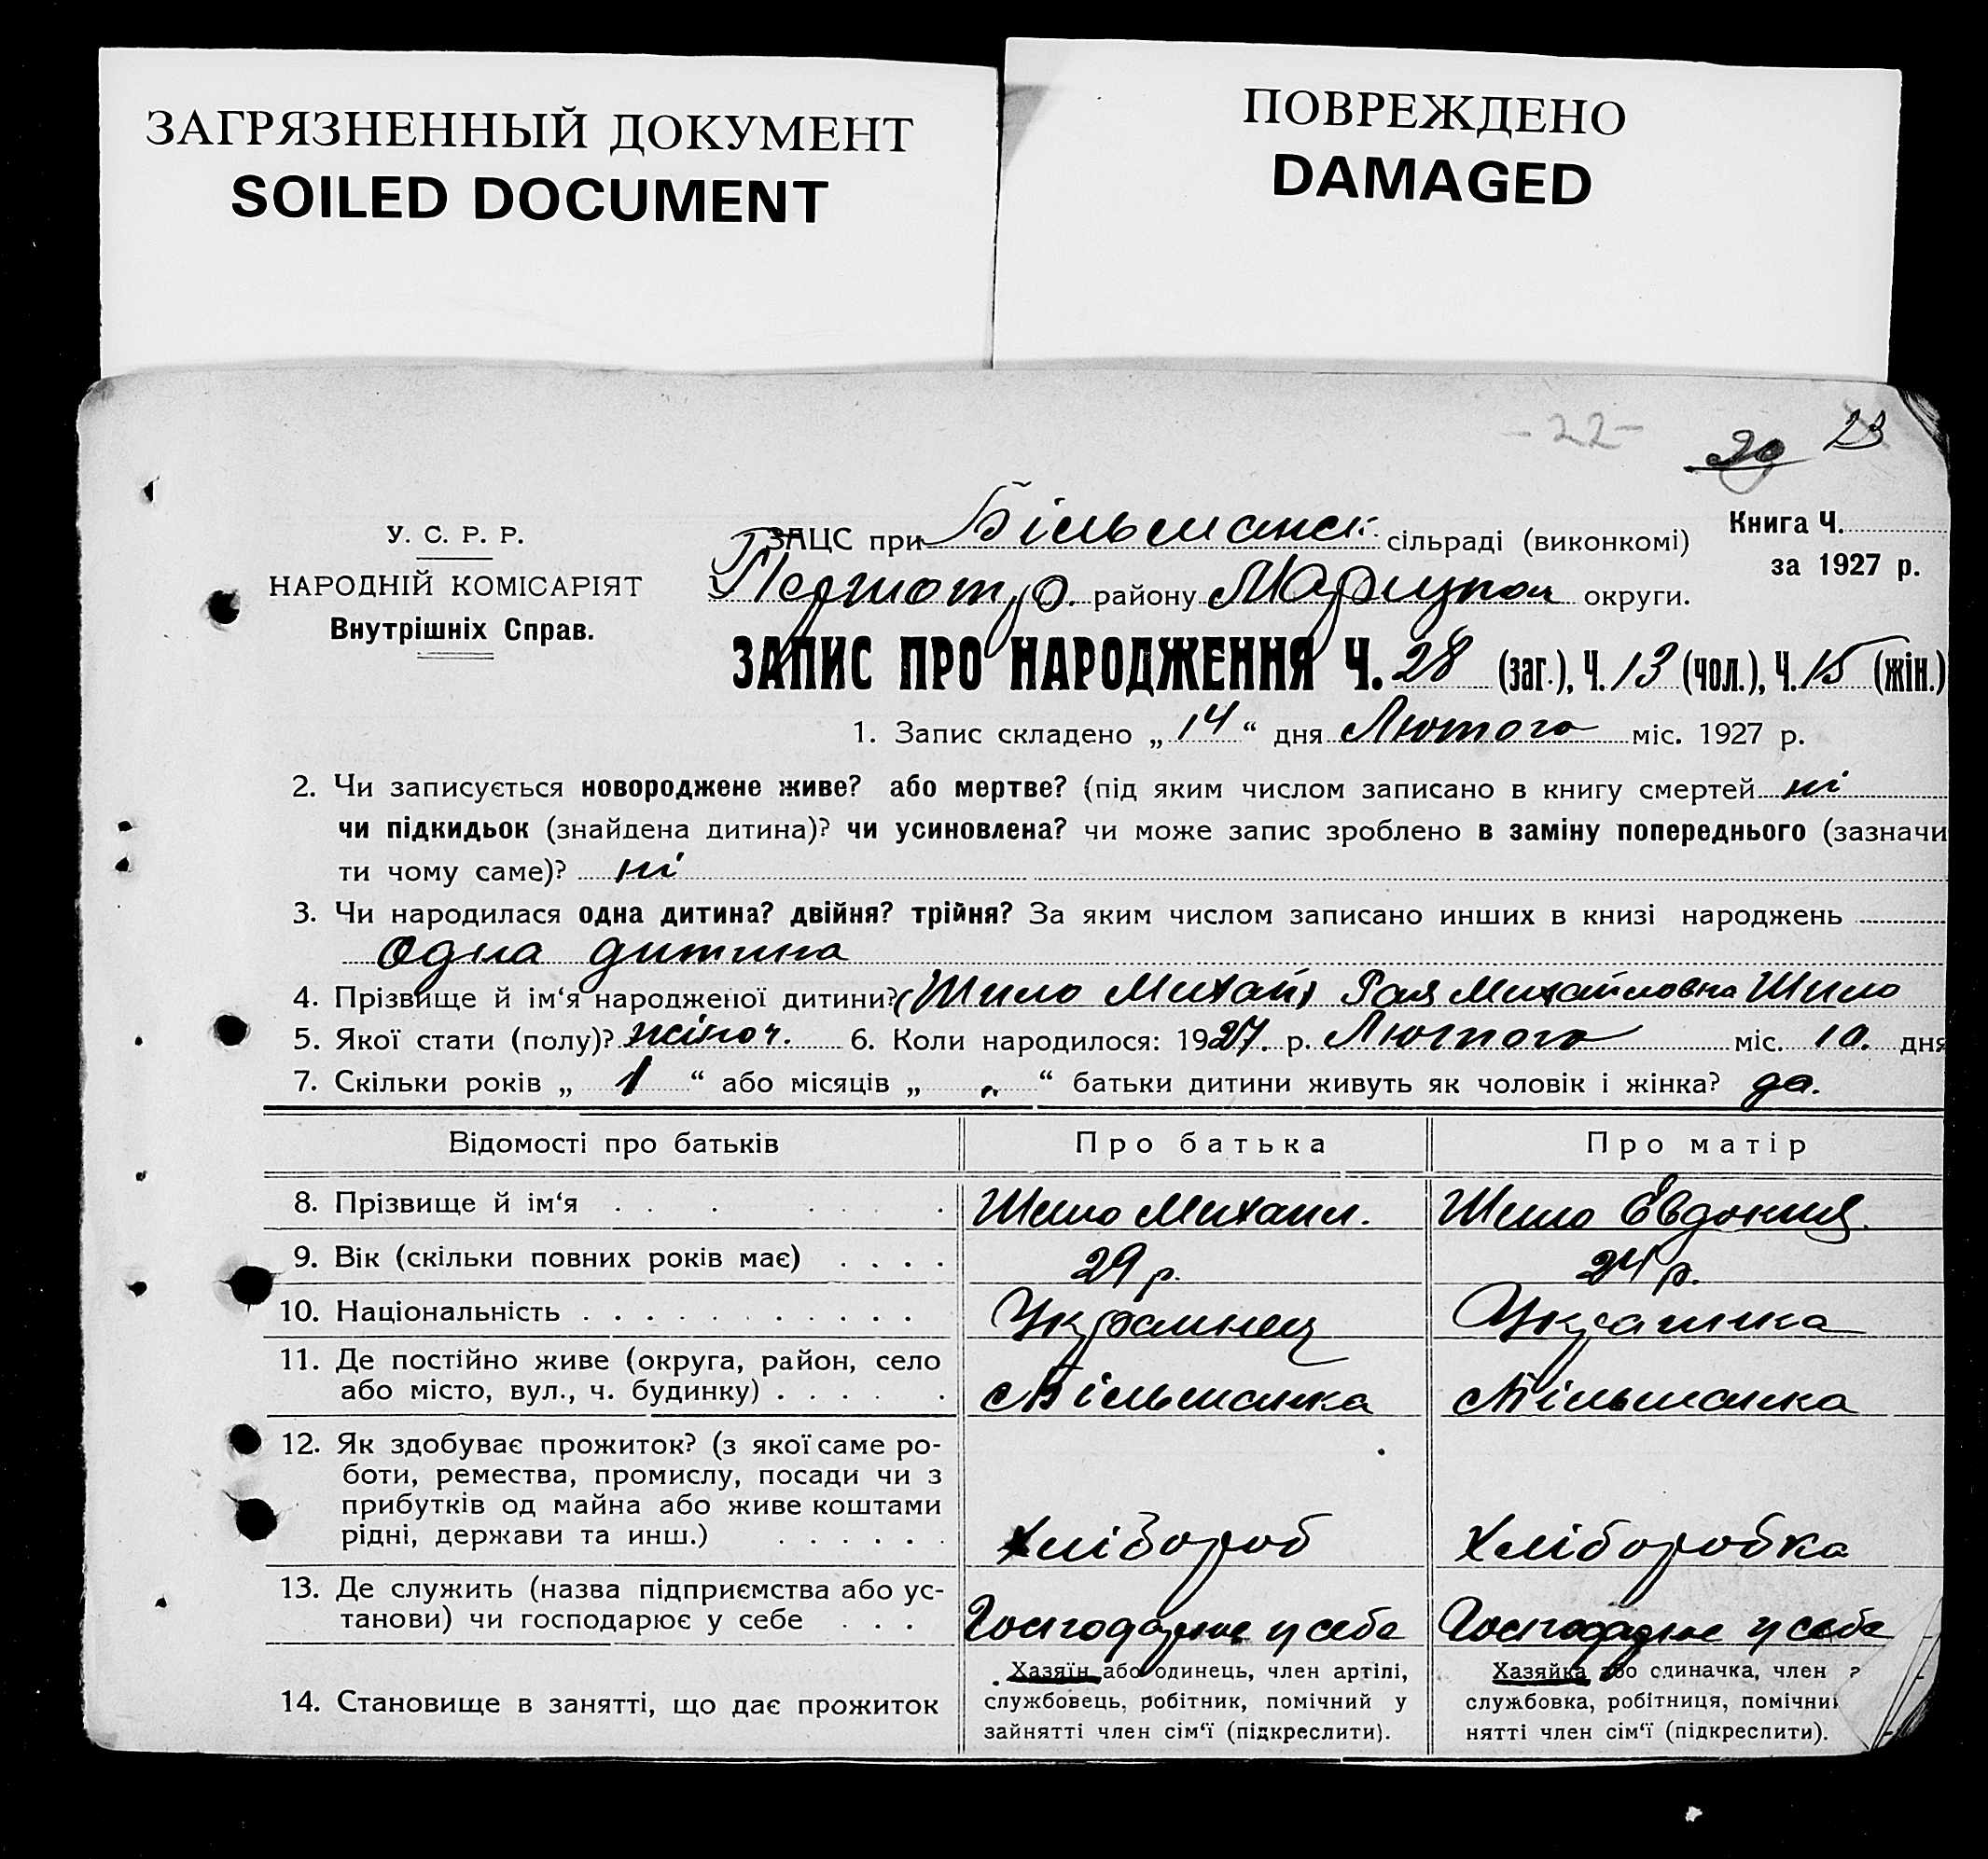 ЗАГРЯЗНЕННЫЙ ДОКУМЕНТ
SOILED DOCUMENT
ПОВРЕЖДЕНО
DAMAGED
- 22 -
29 23
У. С. Р. Р.
НАРОДНІЙ КОМІСАРІЯТ
Внутрішніх Справ.
Книга Ч.
за 1927 р.
ЗАЦС при Більманськ. сільраді (виконкомі)
району Маріупол округи.
ЗАПИС ПРО НАРОДЖЕННЯ Ч. 28 (заг.), Ч. 13 (чол.), Ч. 15 (жін.)
1. Запис складено „ 14 “ дня Лютого міс. 1927 р.
2. Чи записується новороджене живе? або мертве? (під яким числом записано в книгу смертей ні
чи підкидьок (знайдена дитина)? чи усиновлена? чи може запис зроблено в заміну попереднього (зазначи
ти чому саме)? ні
3. Чи народилася одна дитина? двійня? трійня? За яким числом записано инших в книзі народжень
Одна дитина
4. Прізвище й ім‘я народженої дитини? (Шило Михай) Рая Михайловна Шило
5. Якої стати (полу)? жіноч. 6. Коли народилося: 1927. р. Лютого міс. 10. дня
7. Скільки років „ 1 “ або місяців „ „ “ батьки дитини живуть як чоловік і жінка? да.
Відомості про батьків Про батька Про матір
8. Прізвище й ім‘я Шило Михаил. Шило Евдокия.
9. Вік (скільки повних років має) 29 р. 24 р.
10. Національність Украинец Украинка
11. Де постійно живе (округа, район, село
або місто, вул., ч. будинку) Більманка Більманка
12. Як здобуває прожиток? (з якої саме ро-
боти, ремества, промислу, посади чи з
прибутків од майна або живе коштами
рідні, держави та инш.) Хлібороб Хліборобка
13. Де служить (назва підприємства або ус-
танови) чи господарює у себе Господарює у себе Господарює у себе
14. Становище в занятті, що дає прожиток
Хазяїн або одинець, член артілі,
службовець, робітник, помічний у
зайнятті член сім‘ї (підкреслити).
Хазяйка або одиначка, член
службовка, робітниця, помічни
нятті член сім‘ї (підкреслити).